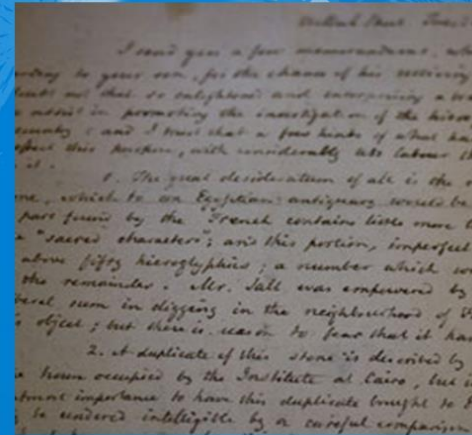 I send you a few memorandums, wh
to your son, for the chance of his
not that so enlightened and enterprising a
assist in promoting the investigation of the hiero
; and I trust that a few hints of what ha
this purpose, with considerably less labour
it.
1. The great desideratum of all is the
, which to an Egyptian antiquary would be
part found by the "French contains little more
"sacred character"; and this portion, imperfect
above fifty hieroglyphics; a number which wo
the remainder. Mr. Salt was empowered by
liberal sum in digging in the neighbourhood of
s object; but there is reason to fear that it has
2. A duplicate of this stone is described by
house occupied by the Institute at Cairo, but
utmost importance to have this duplicate brought to
be rendered intelligible by a careful comparison